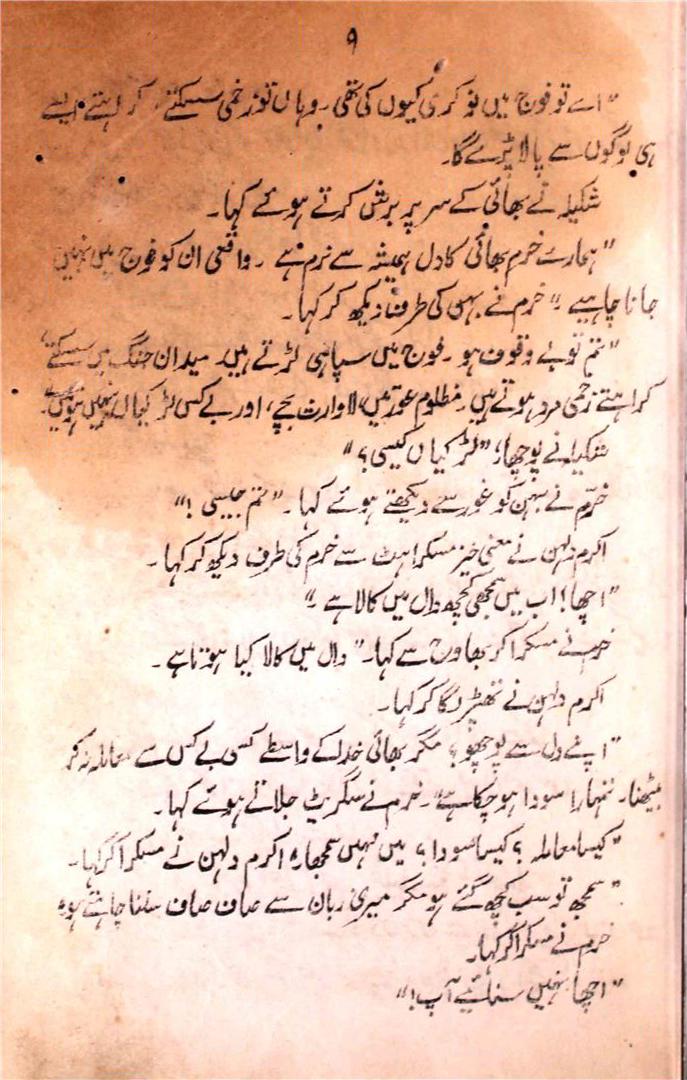 ۹
"اے تو فوج میں نوکری کیوں کی تھی۔ وہاں تو زخمی سسکتے، کراہتے ایسے
ہی لوگوں سے پالا پڑے گا۔
شکیلہ نے بھائی کے سر پر برش کرتے ہوئے کہا۔
"ہمارے خرم بھائی کا دل ہمیشہ سے نرم ہے۔ واقعی ان کو فوج میں نہیں
جانا چاہیے۔" خرم نے بہن کی طرف دیکھ کر کہا۔
"تم تو بے وقوف ہو۔ فوج میں سپاہی لڑتے ہیں۔ میدان جنگ میں سسکتے
کراہتے زخمی مرد ہوتے ہیں۔ مظلوم عورتیں، لاوارث بچے، اور بے کس لڑکیاں نہیں ہوتیں۔
شکیلہ نے پوچھا، "لڑکیاں کیسی؟"
خرّم نے بہن کو غور سے دیکھتے ہوئے کہا۔ "تم جیسی!"
اکرم دلہن نے معنی خیز مسکراہٹ سے خرم کی طرف دیکھ کر کہا۔
"اچھا! اب میں سمجھی کچھ دال میں کالا ہے۔"
خرم نے مسکرا کر بھاوج سے کہا۔ "دال میں کالا کیا ہوتا ہے۔
اکرم دلہن نے تھپڑ لگا کر کہا۔
"اپنے دل سے پوچھو؟ مگر بھائی خدا کے واسطے کسی بے کس سے معاملہ نہ کر
بیٹھنا۔ تمہارا سودا ہو چکا ہے۔ خرم نے سگریٹ جلاتے ہوئے کہا۔
"کیسا معاملہ؟ کیسا سودا؟ میں نہیں سمجھا۔" اکرم دلہن نے مسکرا کر کہا۔
"سمجھ تو سب کچھ گئے ہو مگر میری زبان سے صاف صاف سننا چاہتے ہو"
خرم نے مسکرا کر کہا۔
"اچھا نہیں سنائیے آپ!"